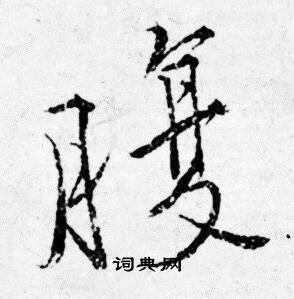 腹
词典网